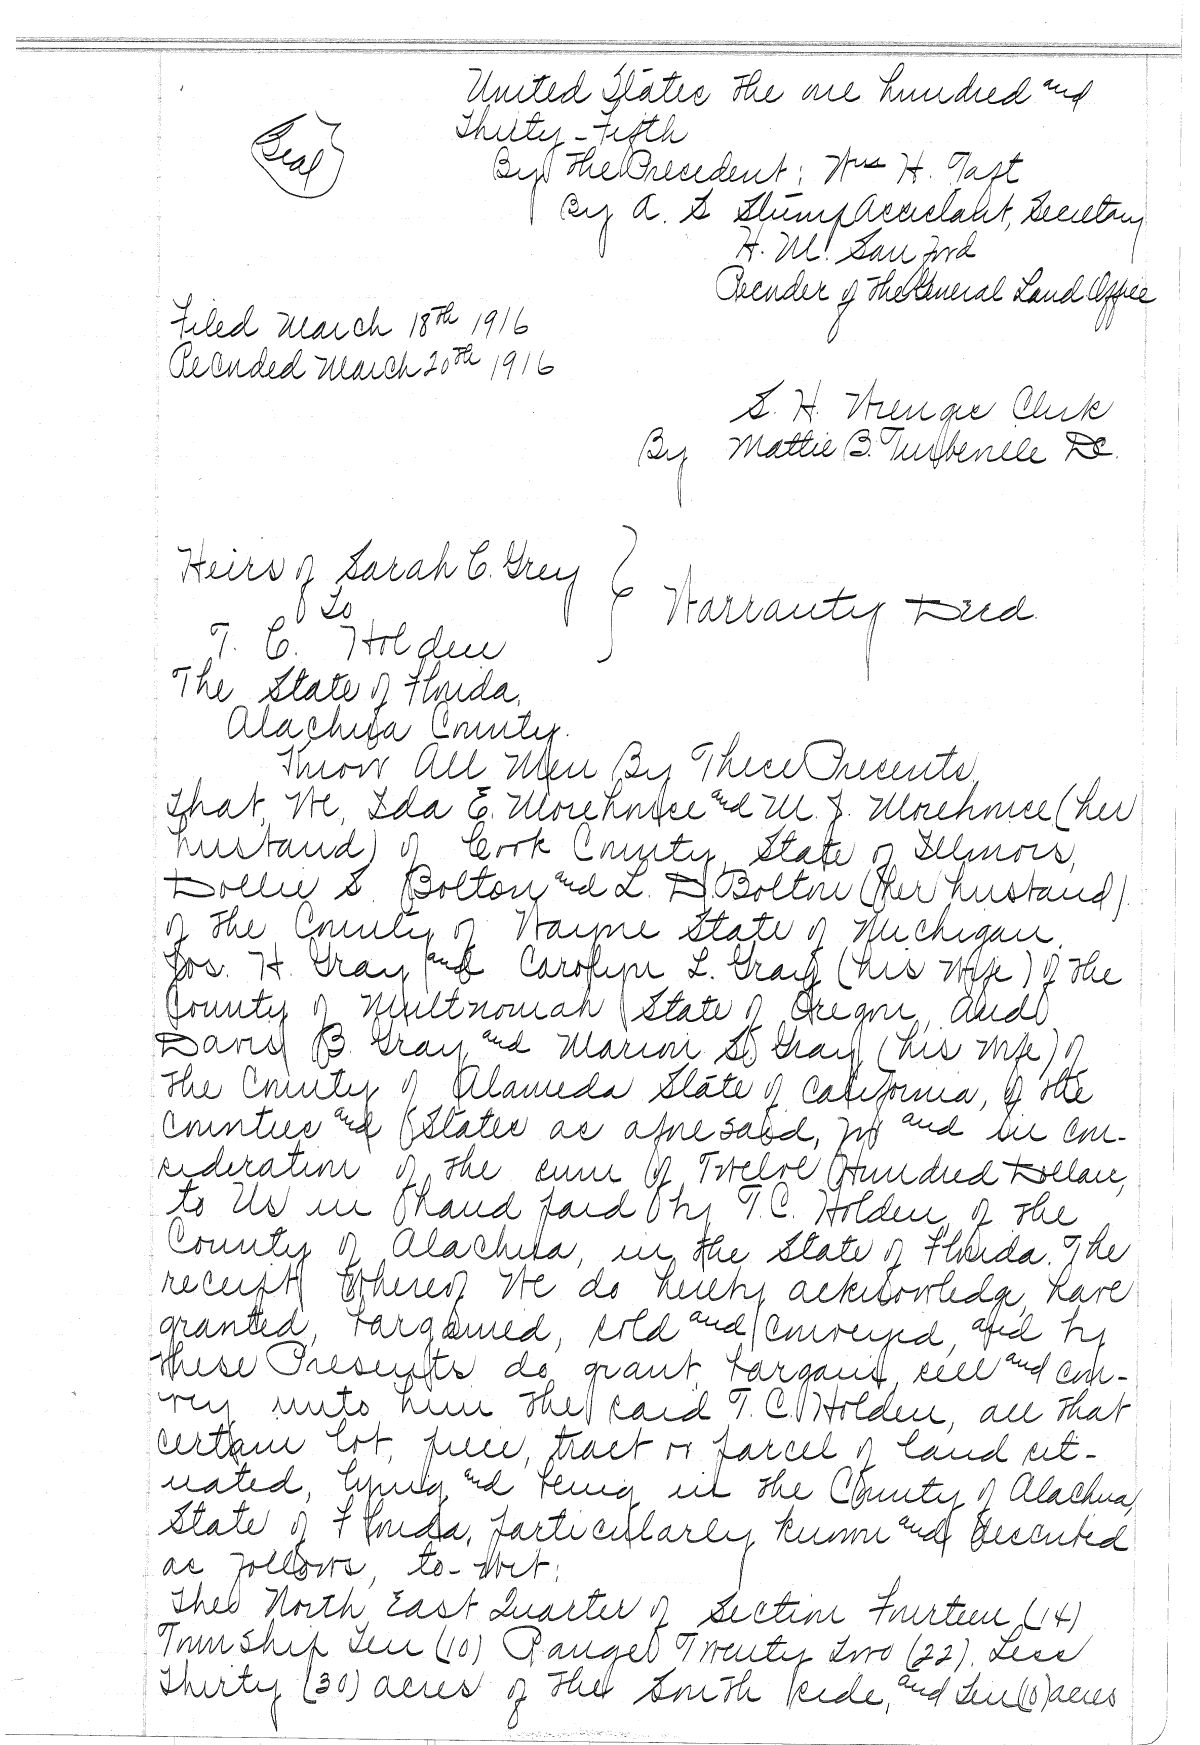 United States the one hundred and
Thirty-Fifth
Seal
By the President: Wm H. Taft
By A. S Stump Assistant, Secretary
H. M. Sanford
Recorder of the General Land Office
Filed March 18th 1916
Recorded March 20th 1916
S. H. Wienges Clerk
By Mattie B. DC.
Heirs of Sarah C. Grey
To
T. C. Holden
Warranty Deed.
The State of Florida,
Alachua County.
Know All Men By These Presents,
that, We, Ida E. Morehouse and M. J. Morehouse (her
husband) of Cook County, State of Illinois,
Dollie S. Bolton and L. D. Bolton (her husband)
of the County of Wayne State of Michigan,
Jos. H. Gray and Carolyn L. Gray (his wife) of the
County of Multnomah State of Oregon, and
David B. Gray and Marion S. Gray (his wife) of
the County of Alameda State of California, of the
Counties and States as aforesaid, for and in con-
sideration of the sum of Twelve Hundred Dollars,
to Us in hand paid by T. C. Holden, of the
County of Alachua, in the State of Florida. The
receipt whereof We do hereby acknowledge, have
granted, bargained, sold and conveyed, and by
these Presents do grant, bargain, sell and con-
vey unto him the said T. C. Holden, all that
certain lot, piece, tract or parcel of land sit-
uated, lying and being in the County of Alachua,
State of Florida, particularly known and described
as follows, to-wit:
The North East Quarter of Section Fourteen (14)
Township Ten (10) Range Twenty Two (22), Less
Thirty (30) acres of the South side, and Ten (10) acres